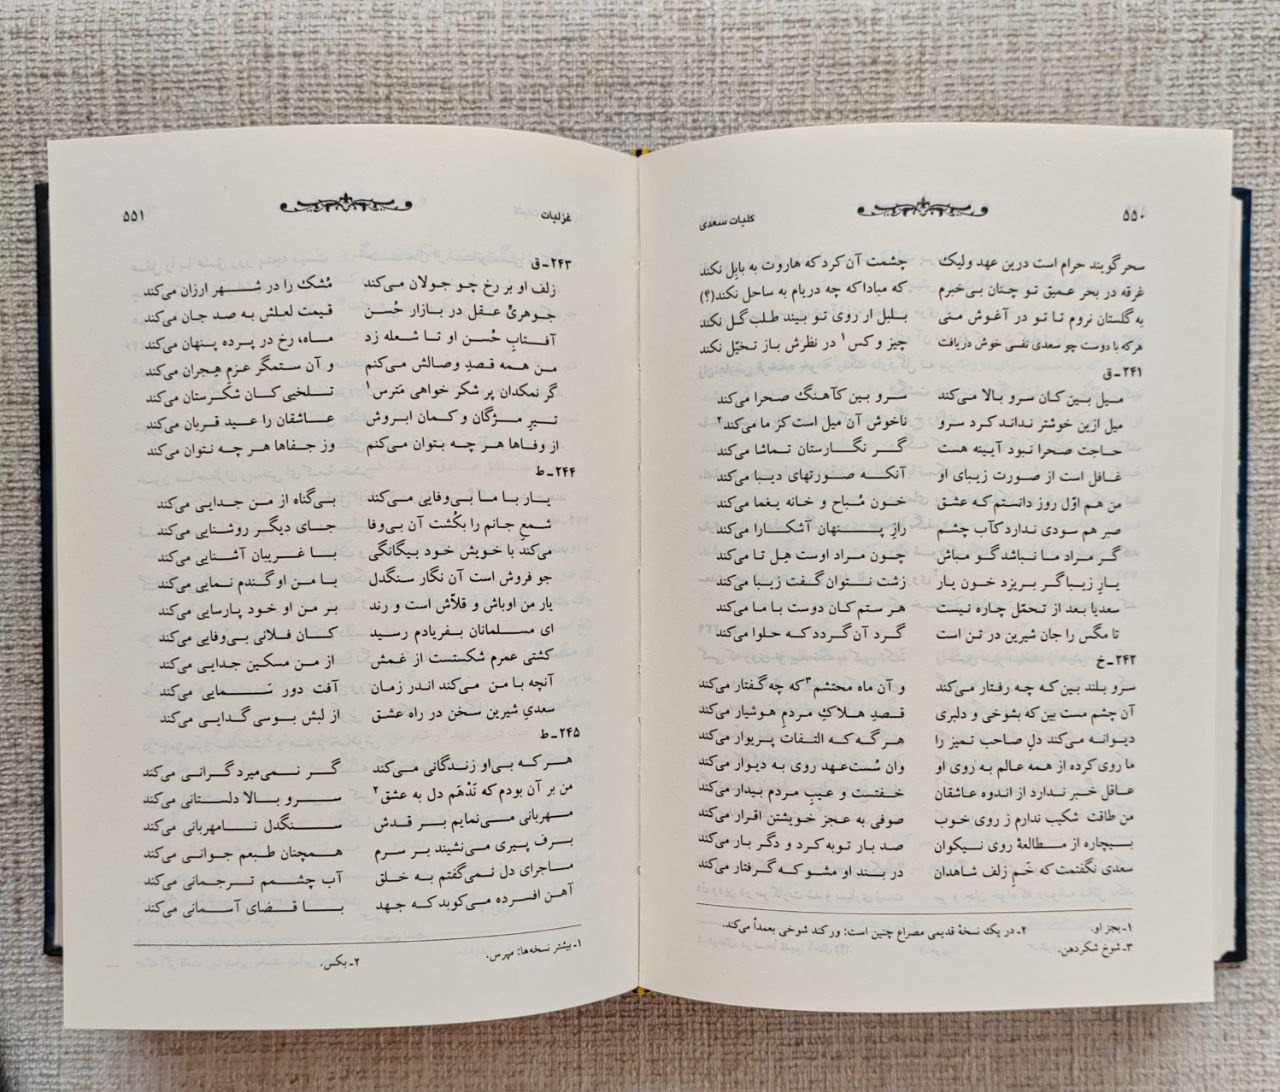 ۵۵۰
کلیات سعدی
سحر گویند حرام است درین عهد ولیک چشمت آن کرد که هاروت به بابل نکند
غرقه در بحر عمیق تو چنان بی‌خبرم که مبادا که چه دریام به ساحل نکند(؟)
به گلستان نروم تا تو در آغوش منی بلبل ار روی تو بیند طلب گل نکند
هرکه با دوست چو سعدی نفسی خوش دریافت چیز و کس۱ در نظرش باز تخیّل نکند
۲۴۱ـ ق
میل بین کان سرو بالا می‌کند سرو بین کآهنگ صحرا می‌کند
میل ازین خوشتر نداند کرد سرو ناخوش آن میل است کز ما می‌کند۲
حاجت صحرا نبود آیینه هست گر نگارستان تماشا می‌کند
غافل است از صورت زیبای او آنکه صورتهای دیبا می‌کند
من هم اوّل روز دانستم که عشق خون مُباح و خانه یغما می‌کند
صبر هم سودی ندارد کآب چشم رازِ پنهان آشکارا می‌کند
گر مراد ما نباشد گو مباش چون مراد اوست هِل تا می‌کند
یارِ زیبا گر بریزد خون یار زشت نتوان گفت زیبا می‌کند
سعدیا بعد از تحمّل چاره نیست هر ستم کان دوست با ما می‌کند
تا مگس را جان شیرین در تن است گرد آن گردد که حلوا می‌کند
۲۴۲ـ خ
سرو بلند بین که چه رفتار می‌کند و آن ماه محتشم۳ که چه گفتار می‌کند
آن چشم مست بین که بشوخی و دلبری قصدِ هلاکِ مردمِ هوشیار می‌کند
دیوانه می‌کند دلِ صاحب تمیز را هر گه که التفات پریوار می‌کند
ما روی کرده از همه عالم به روی او وان سُست‌عهد روی به دیوار می‌کند
عاقل خبر ندارد از اندوه عاشقان خفتست و عیبِ مردم بیدار می‌کند
من طاقت شکیب ندارم ز روی خوب صوفی به عجز خویشتن اقرار می‌کند
بیچاره از مطالعهٔ روی نیکوان صد بار توبه کرد و دگر بار می‌کند
سعدی نگفتمت که خَمِ زلف شاهدان در بند او مشو که گرفتار می‌کند
۱ـ بجز او. ۲ـ در یک نسخهٔ قدیمی مصراع چنین است: ور کند شوخی بعمدأ می‌کند.
۳ـ شوخ شکردهن.
غزلیات
۵۵۱
۲۴۳ـ ق
زلف او بر رخ چو جولان می‌کند مُشک را در شهر ارزان می‌کند
جوهریِّ عقل در بازار حُسن قیمت لعلش به صد جان می‌کند
آفتابِ حُسن او تا شعله زد ماه، رخ در پرده پنهان می‌کند
من همه قصدِ وصالش می‌کنم و آن ستمگر عزمِ هجران می‌کند
گر نمکدان پر شکر خواهی مَترس۱ تلخیی کان شکرستان می‌کند
تیرِ مژگان و کمان ابروش عاشقان را عید قربان می‌کند
از وفاها هر چه بتوان می‌کنم وز جفاها هر چه نتوان می‌کند
۲۴۴ـ ط
یار با ما بی‌وفایی می‌کند بی‌گناه از من جدایی می‌کند
شمعِ جانم را بکُشت آن بی‌وفا جای دیگر روشنایی می‌کند
می‌کند با خویش خود بیگانگی با غریبان آشنایی می‌کند
جو فروش است آن نگار سنگدل با من او گندم نمایی می‌کند
یار من اوباش و قلاّش است و رند بر من او خود پارسایی می‌کند
ای مسلمانان بفریادم رسید کان فلانی بی‌وفایی می‌کند
کشتی عمرم شکستست از غمش از من مسکین جدایی می‌کند
آنچه با من می‌کند اندر زمان آفت دور سَمایی می‌کند
سعدیِ شیرین سخن در راه عشق از لبش بوسی گدایی می‌کند
۲۴۵ـ ط
هر که بی‌او زندگانی می‌کند گر نمی‌میرد گرانی می‌کند
من بر آن بودم که نَدْهَم دل به عشق۲ سرو بالا دلستانی می‌کند
مهربانی می‌نمایم بر قدش سنگدل نامهربانی می‌کند
برف پیری می‌نشیند بر سرم همچنان طبعم جوانی می‌کند
ماجرای دل نمی‌گفتم به خلق آب چشمم ترجمانی می‌کند
آهن افسرده می‌کوبد که جهد با قضای آسمانی می‌کند
۱ـ بیشتر نسخه‌ها: مپرس. ۲ـ بکس.